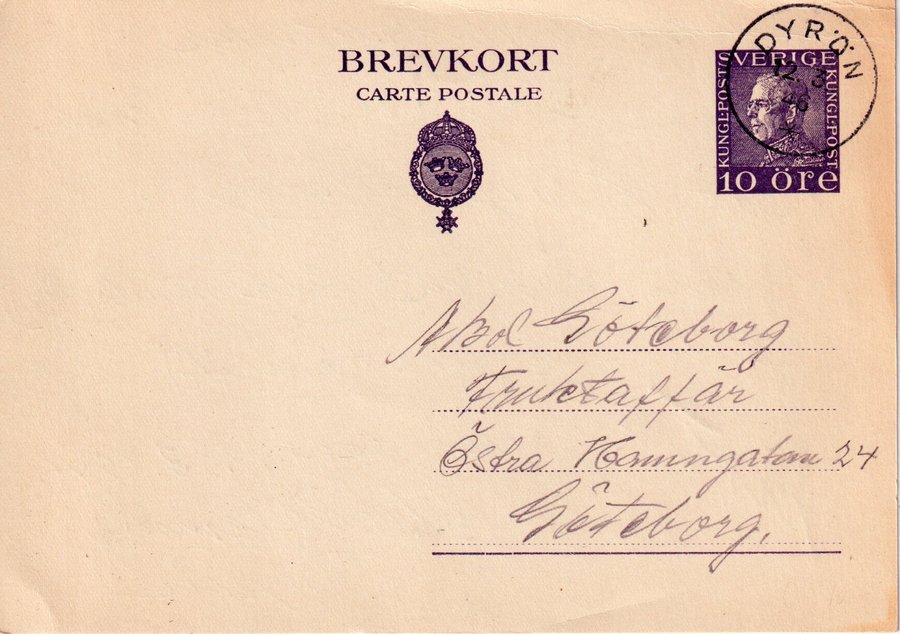 BREVKORT
CARTE POSTALE
DYRÖN
12. 3
46
SVERIGE
KUNGL·POST
KUNGL·POST
10 öre
Göteborg
Fruktaffär
Östra Hamngatan 24
Göteborg.